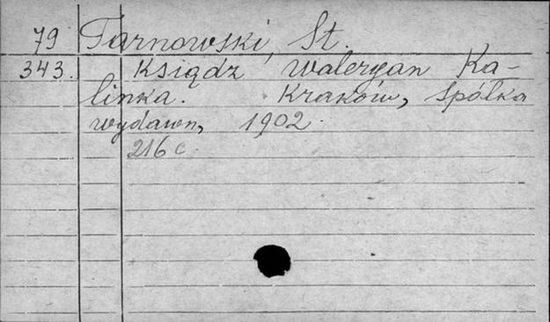 79 Tarnowski, St.
343. Ksiądz Waleryan Ka-
linka. Kraków, Spółka
wydawn, 1902.
216 c.